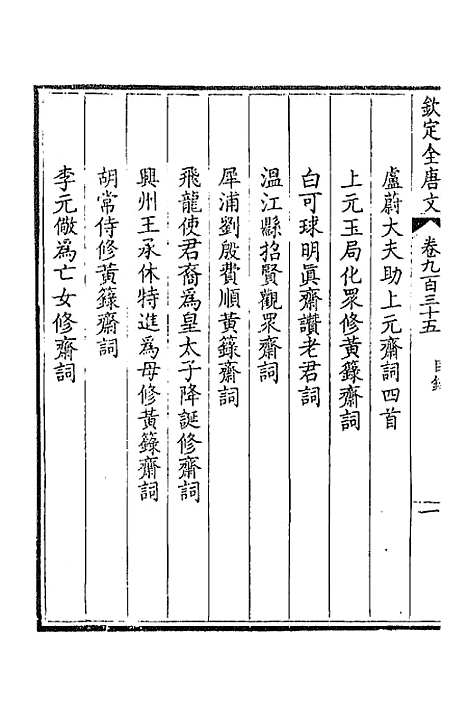 欽定全唐文 卷九百三十五 目錄 一
盧蔚大夫助上元齋詞四首
上元玉局化眾修黃籙齋詞
白可球明眞齋讚老君詞
溫江縣招賢觀眾齋詞
犀浦劉殷費順黃籙齋詞
飛龍使君裔爲皇太子降誕修齋詞
興州王承休特進爲母修黃籙齋詞
胡常侍修黃籙齋詞
李元儆爲亡女修齋詞